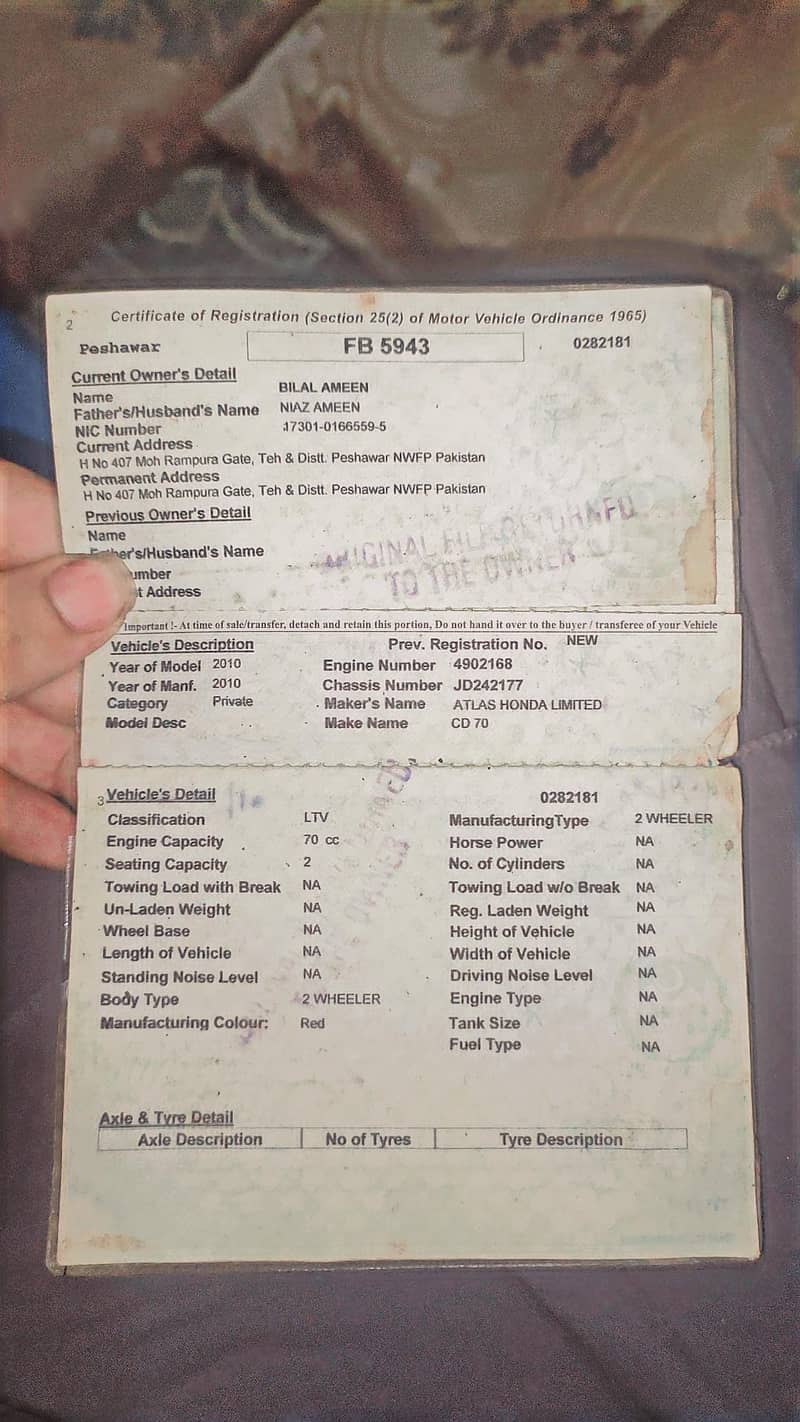 2
Certificate of Registration (Section 25(2) of Motor Vehicle Ordinance 1965)
Peshawar FB 5943 0282181
Current Owner's Detail
Name BILAL AMEEN
Father's/Husband's Name NIAZ AMEEN
NIC Number 17301-0166559-5
Current Address
H No 407 Moh Rampura Gate, Teh & Distt. Peshawar NWFP Pakistan
Permanent Address
H No 407 Moh Rampura Gate, Teh & Distt. Peshawar NWFP Pakistan
Previous Owner's Detail
Name
Father's/Husband's Name
umber
t Address
ORIGINAL FILE RETURNED
TO THE OWNER
Important !- At time of sale/transfer, detach and retain this portion, Do not hand it over to the buyer / transferee of your Vehicle
Vehicle's Description Prev. Registration No. NEW
Year of Model 2010 Engine Number 4902168
Year of Manf. 2010 Chassis Number JD242177
Category Private Maker's Name ATLAS HONDA LIMITED
Model Desc Make Name CD 70
3 Vehicle's Detail 0282181
Classification LTV ManufacturingType 2 WHEELER
Engine Capacity 70 cc Horse Power NA
Seating Capacity 2 No. of Cylinders NA
Towing Load with Break NA Towing Load w/o Break NA
Un-Laden Weight NA Reg. Laden Weight NA
Wheel Base NA Height of Vehicle NA
Length of Vehicle NA Width of Vehicle NA
Standing Noise Level NA Driving Noise Level NA
Body Type 2 WHEELER Engine Type NA
Manufacturing Colour: Red Tank Size NA
Fuel Type NA
Axle & Tyre Detail
Axle Description No of Tyres Tyre Description